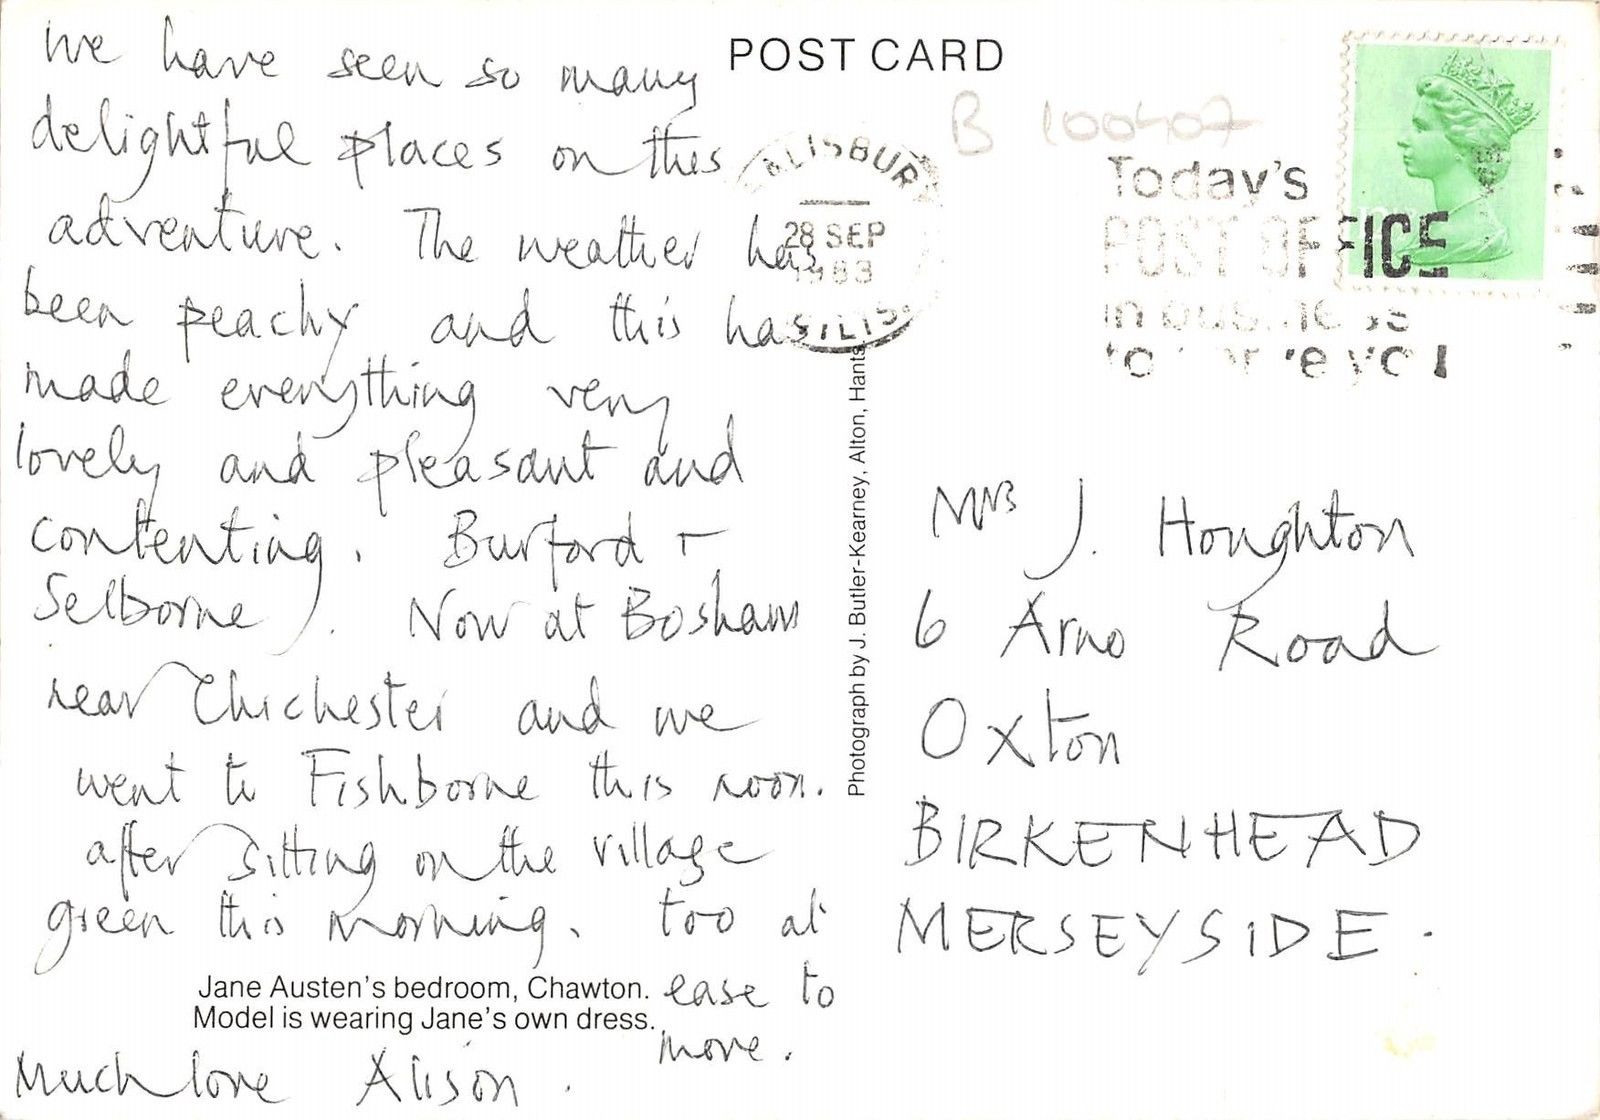 We have seen so many
delightful places on this
adventure. The weather has
been peachy and this has
made everything very
lovely and pleasant and
contenting. Burford +
Selborne). Now at Bosham
near Chichester and we
went to Fishborne this noon.
after sitting on the village
green this morning. too at
ease to
more.
Jane Austen's bedroom, Chawton.
Model is wearing Jane's own dress.
Much love Alison.
POST CARD
B 100407
SALISBURY
28 SEP
1983
Today's
POST OFFICE
in business
to serve you
Photograph by J. Butler-Kearney, Alton, Hants.
Mrs J. Houghton
6 Arno Road
Oxton
BIRKENHEAD
MERSEYSIDE.